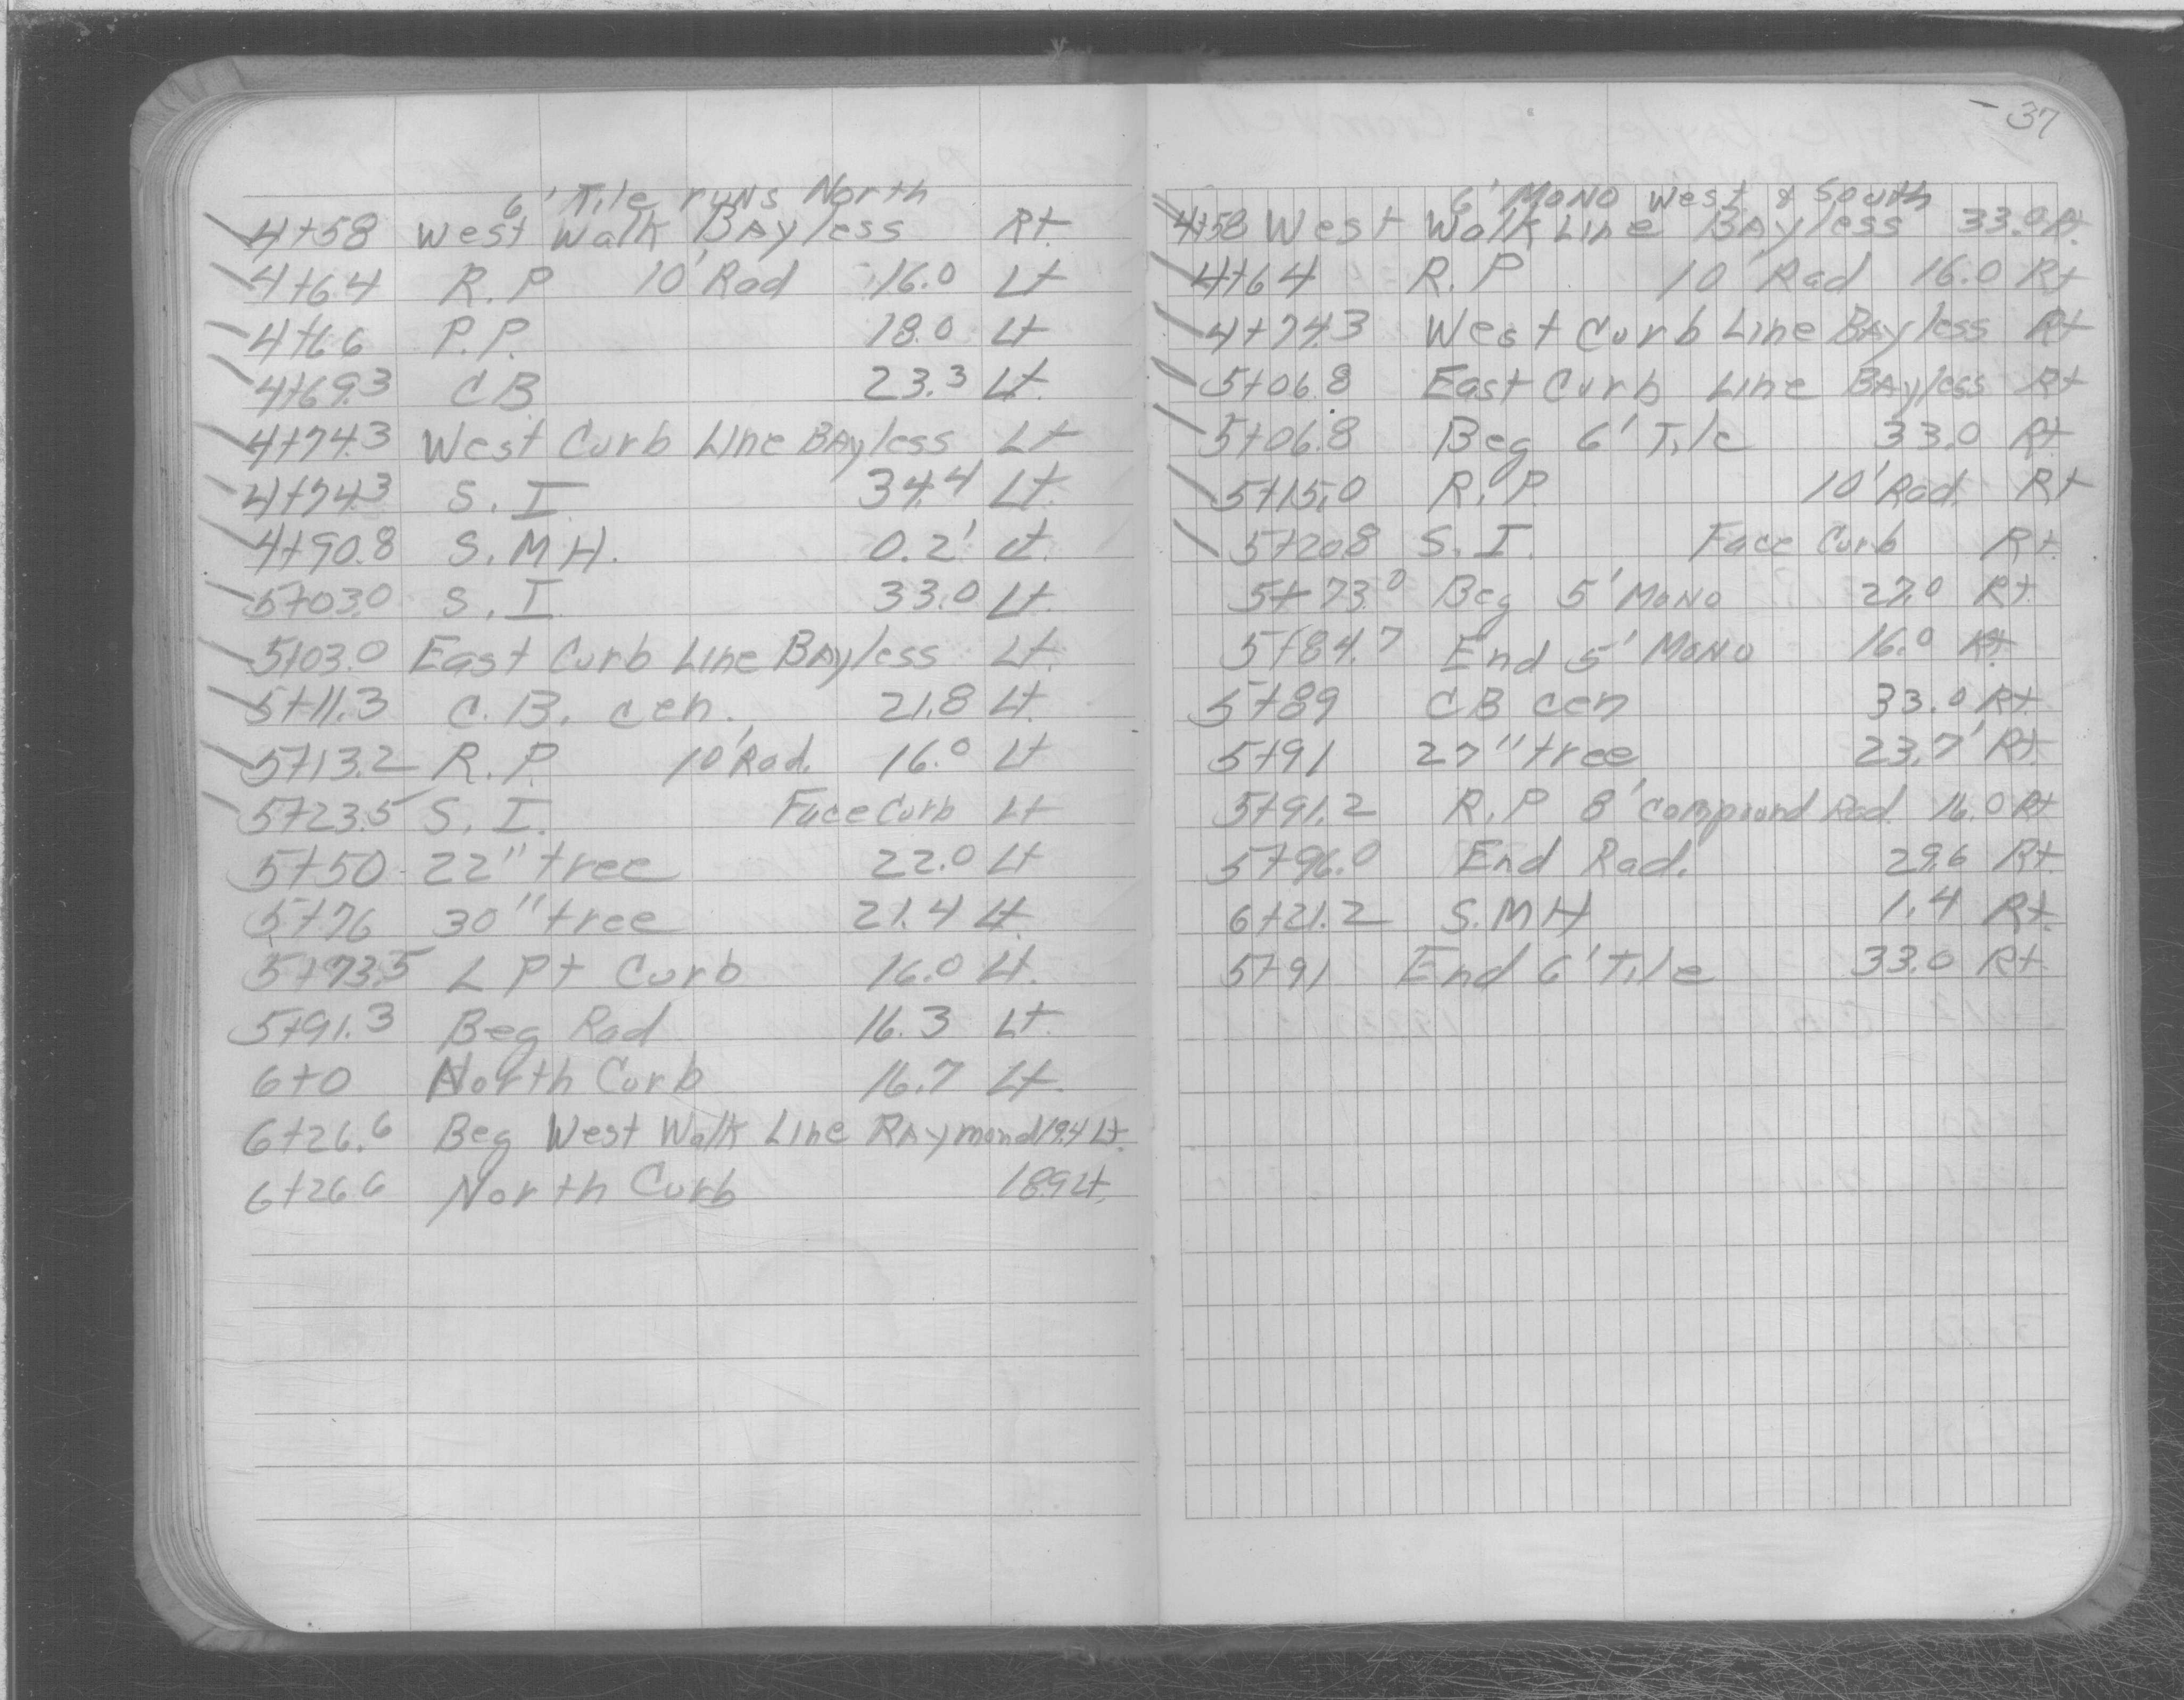 6' Tile runs North
4+58 West Walk Bayless Rt.
4+64 R.P 10' Rad 16.0 Lt
4+66 P.P. 18.0 Lt
4+69.3 CB 23.3 Lt.
4+74.3 West Curb Line Bayless Lt
4+74.3 S.I 34.4 Lt.
4+90.8 S.M.H. 0.2' Lt.
5+03.0 S.I 33.0 Lt.
5+03.0 East Curb Line Bayless Lt.
5+11.3 C.B. cen. 21.8 Lt.
5+13.2 R.P. 10' Rad. 16.0 Lt
5+23.5 S.I. Face Curb Lt
5+50 22" tree 22.0 Lt
5+76 30" tree 21.4 Lt.
5+73.5 L Pt Curb 16.0 Lt.
5+91.3 Beg Rad 16.3 Lt.
6+0 North Curb 16.7 Lt.
6+26.6 Beg West Walk Line Raymond 19.4 Lt.
6+26.6 North Curb 18.9 Lt.
37
6' Mono West & South
4+58 West Walk Line Bayless 33.0 Rt.
4+64 R.P 10' Rad 16.0 Rt
4+74.3 West Curb Line Bayless Rt
5+06.8 East Curb Line Bayless Rt
5+06.8 Beg 6' Tile 33.0 Rt
5+15.0 R.P. 10' Rad. Rt
5+20.8 S.I. Face Curb Rt.
5+73.0 Beg 5' Mono 27.0 Rt
5+84.7 End 5' Mono 16.0 Rt.
5+89 CB cen 33.0 Rt.
5+91 27" tree 23.7' Rt.
5+91.2 R.P 8' compound Rad. 16.0 Rt
5+96.0 End Rad. 29.6 Rt.
6+21.2 S.M H 1.4 Rt.
5+91 End 6' Tile 33.0 Rt